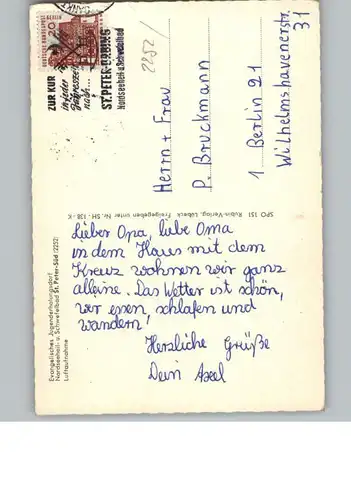 ZUR KUR
in jeder
nach...
ST. PETER-ORDING
Nordseeheil- u. Schwefelbad
2252/
Herrn + Frau
P. Bruckmann
1 Berlin 21
Wilhelmshavenerstr.
31
SPO 151 Rubin-Verlag, Lübeck Freigegeben unter Nr. SH - 138 - K
Evangelisches Jugenderholungsdorf
Nordseeheil- u. Schwefelbad St. Peter-Süd (2252)
Luftaufnahme
Lieber Opa, liebe Oma
in dem Haus mit dem
Kreuz wohnen wir ganz
alleine. Das Wetter ist schön,
wir essen, schlafen und
wandern!
Herzliche Grüße
Dein Axel